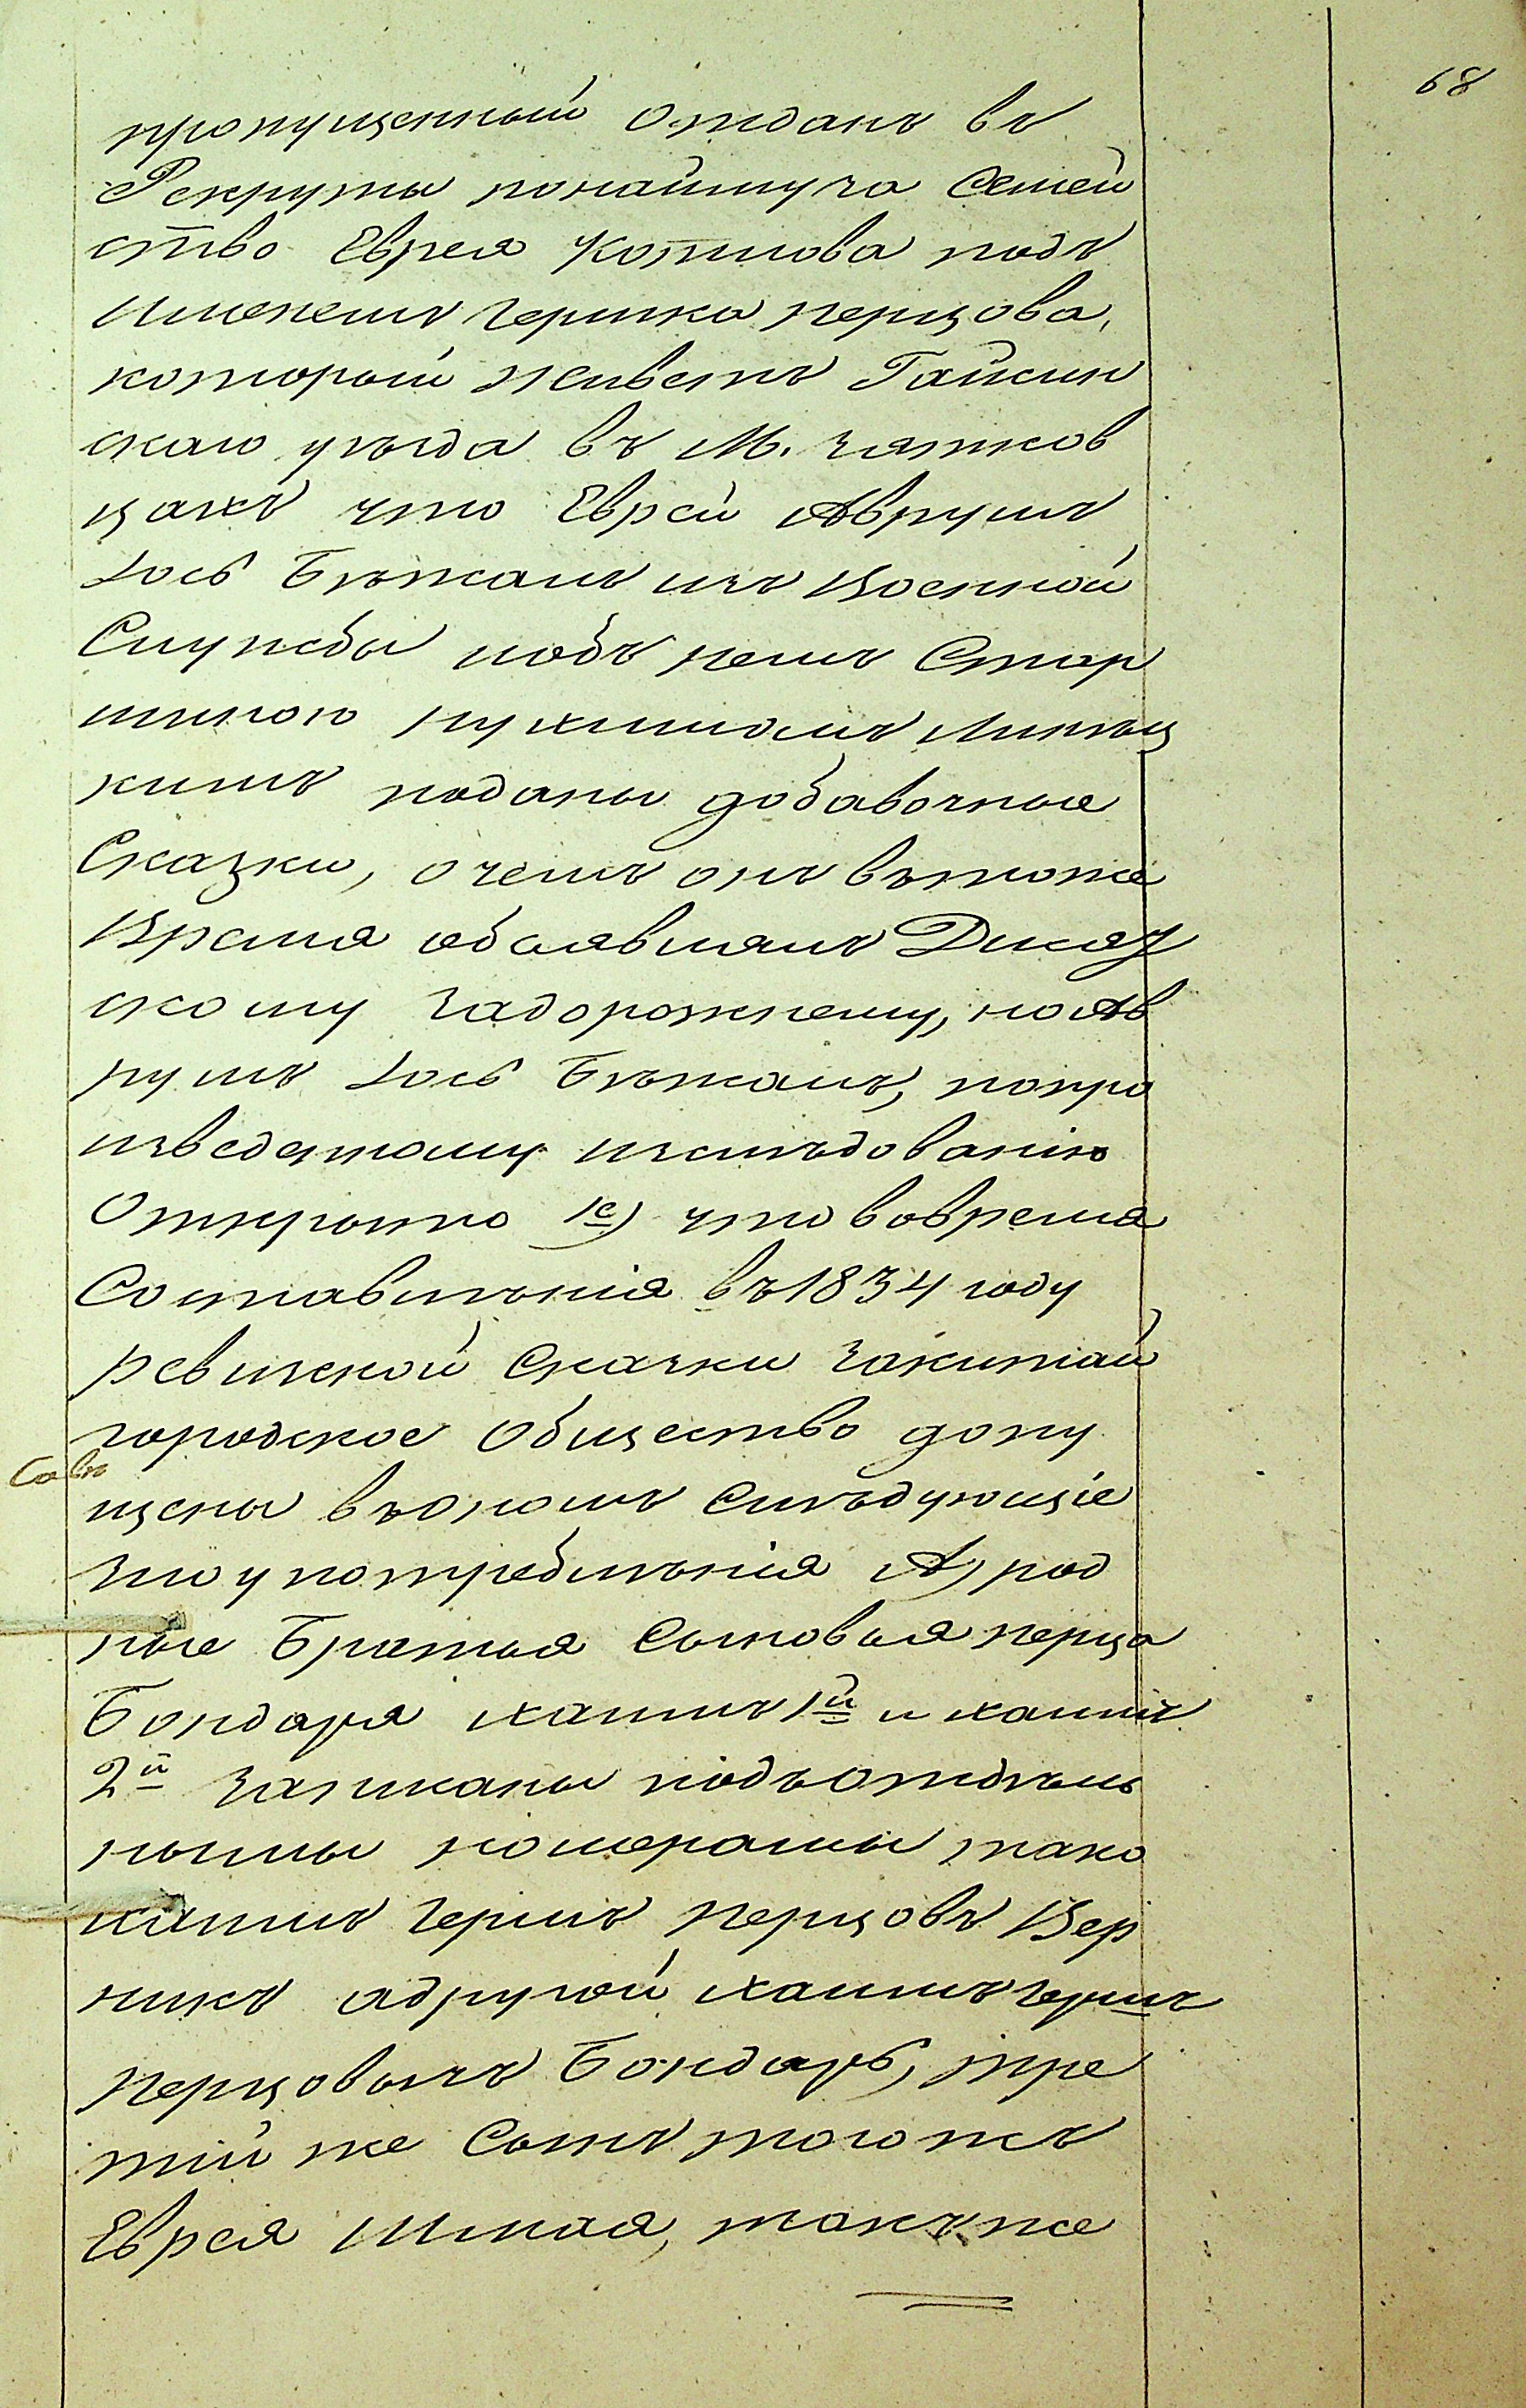 68
пропущенный отданъ въ
Рекруты понайму за Семей
ство Еврея Котлова подъ
именемъ Гершка Перцова,
который живетъ Гайсин
скаго уѣзда въ М. Зятков
цахъ что Еврей Аврумъ
Іось Бѣжалъ изъ Военной
Службы подъ нимъ Стар
шиною Нухимомъ Липец
кимъ поданы добавочные
Сказки, о чемъ онъ въ тоже
Время объявлялъ Дикаѣ
скому Задорожнему, но Ав
румъ Іось Бѣжалъ, попро
изведенному изслѣдованію
Открыто 1е) что вовремя
Составлѣнія въ 1834 году
ревизской Сказки Закитай
городское Общество допу
щены въ ономъ Слѣдующіе
злоупотреблѣнія А) род
ные Братья Сыновья перца
Бондаря хаимъ 1й и хаимъ
2й Записаны подъ отдѣль
ными номерами тако
хаимъ Гершъ Перцовъ Вер
никъ а другой хаимъ Гершъ
Перцовычъ Бондарь, тре
тій же Сынъ тогожъ
Еврея Шмая, такъ же